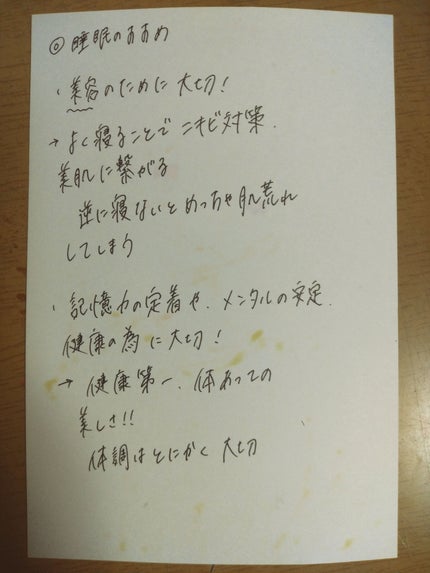 ◎ 睡眠のすすめ
・美容のために 大切!
→ よく寝ることで ニキビ対策.
美肌に繋がる
逆に寝ないとめっちゃ肌荒れ
してしまう
・記憶力の定着や、メンタルの安定.
健康の為に大切!
→ 健康第一、体あっての
美しさ!!
体調はとにかく 大切